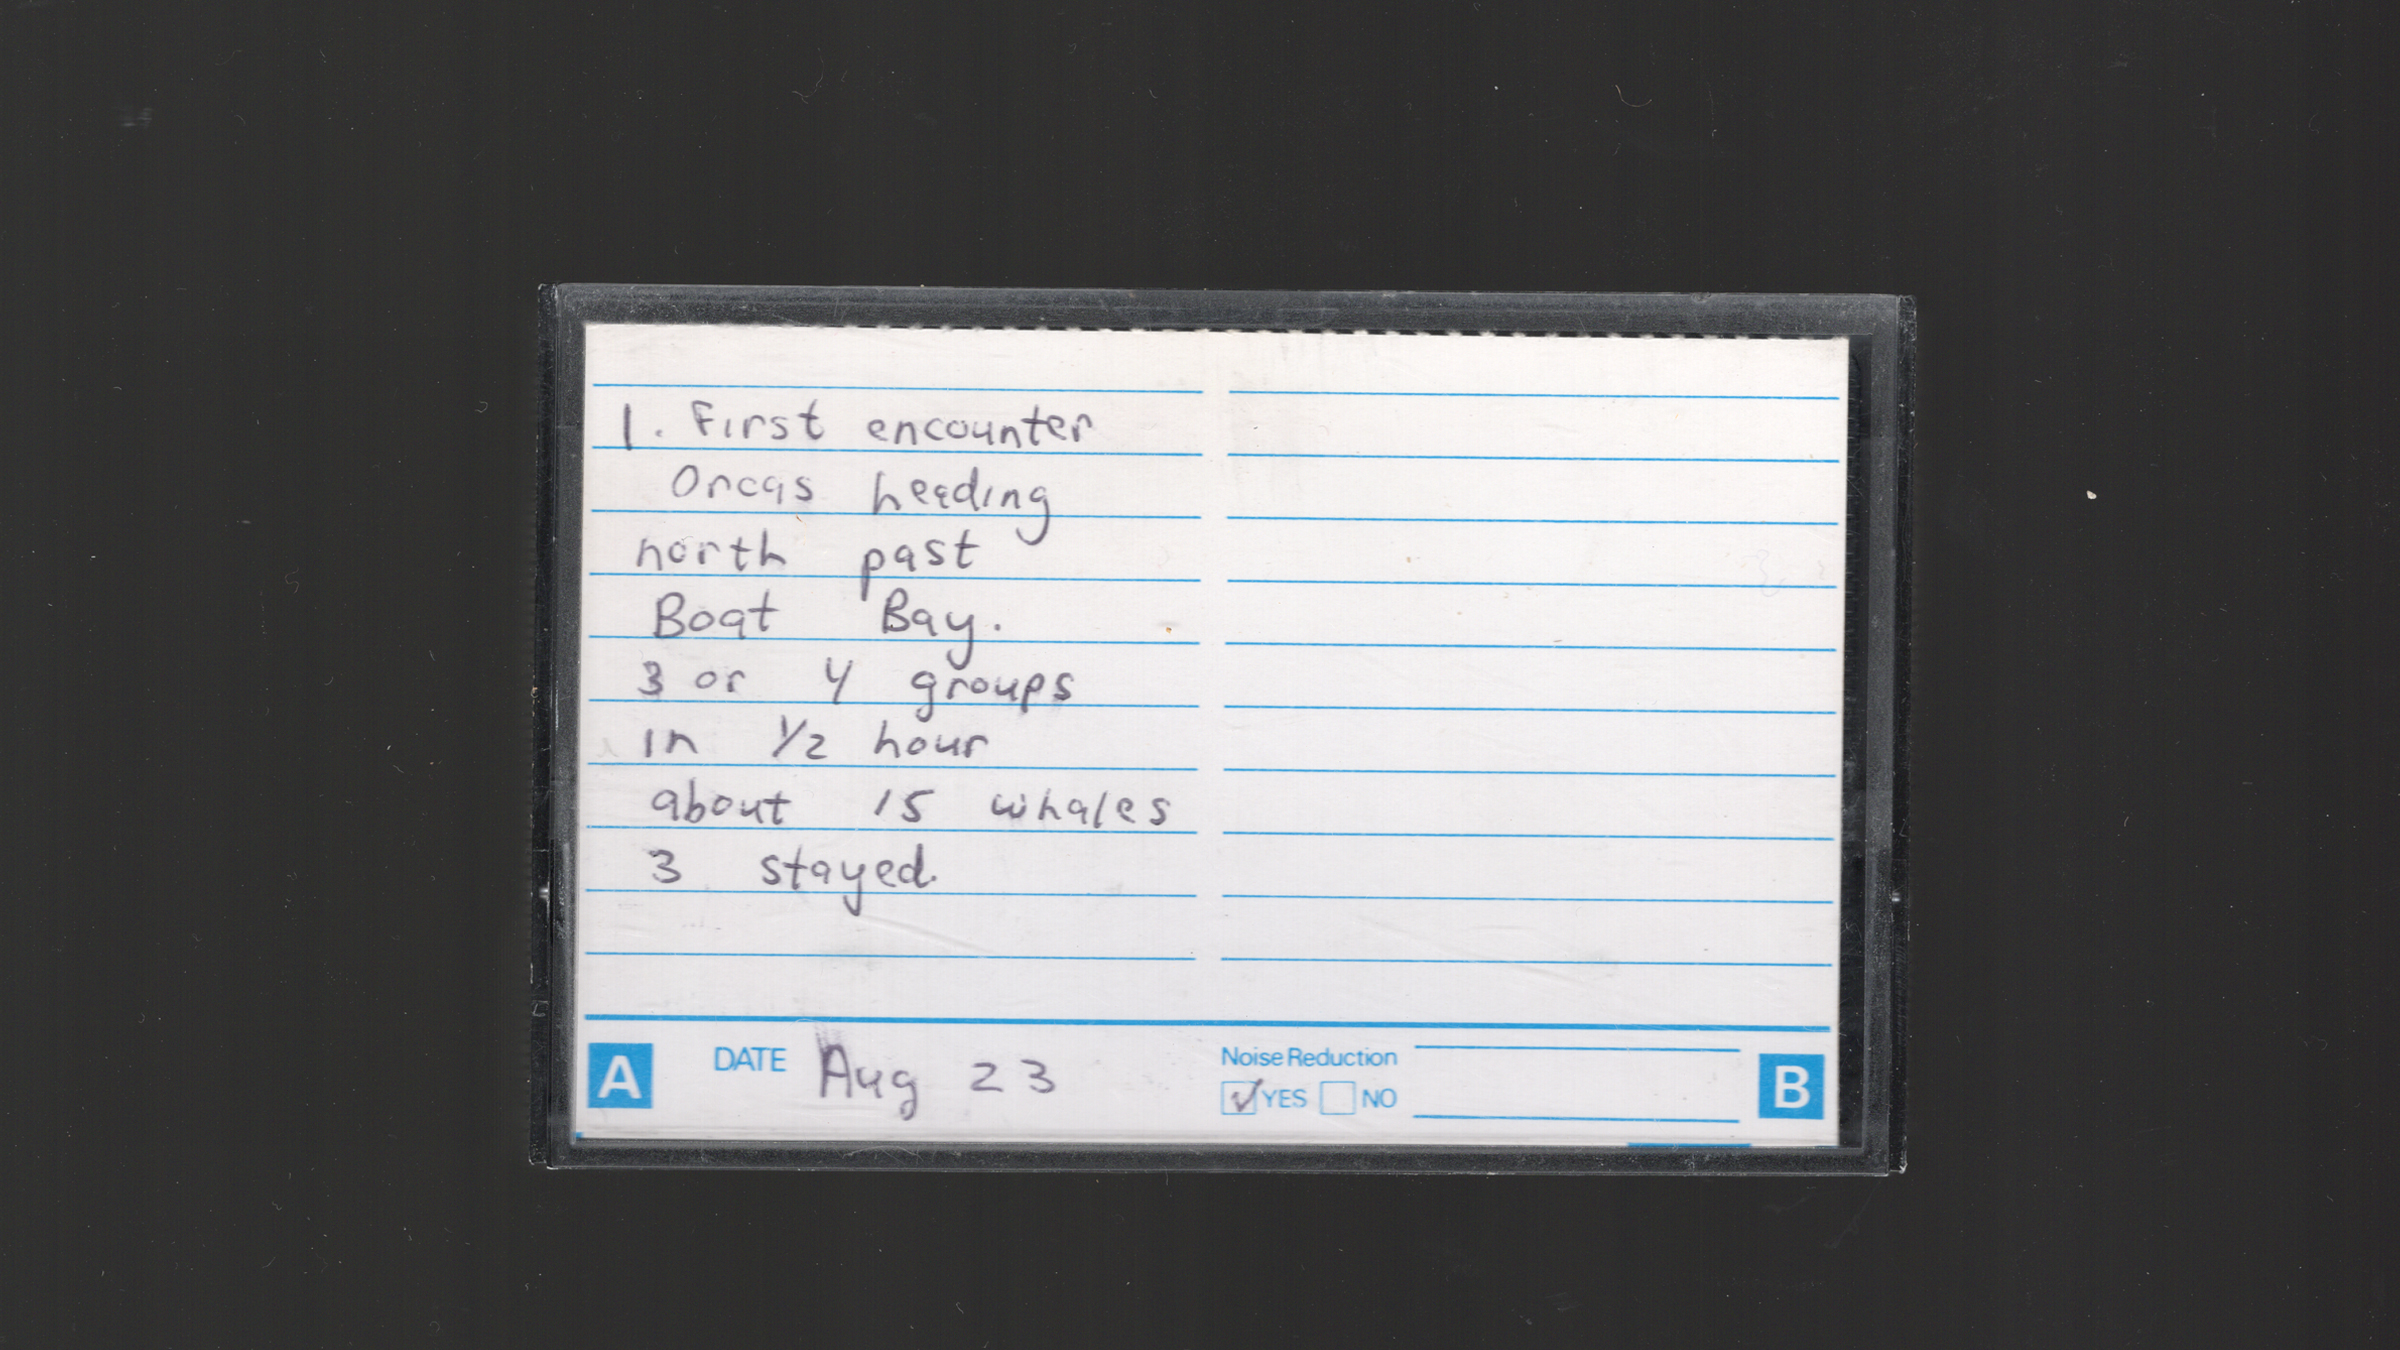 1. First encounter
Orcas heading
north past
Boat Bay.
3 or 4 groups
in 1/2 hour
about 15 whales
3 stayed.
A DATE Aug 23 Noise Reduction B
YES NO